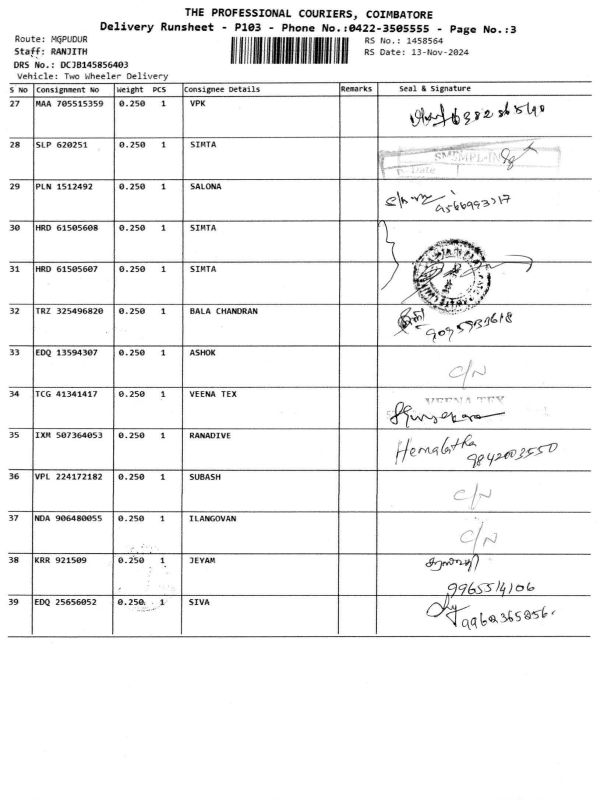 THE PROFESSIONAL COURIERS, COIMBATORE
Delivery Runsheet - P103 - Phone No.:0422-3505555 - Page No.:3
Route: MGPUDUR
RS No.: 1458564
Staff: RANJITH
RS Date: 13-Nov-2024
DRS No.: DCJB145856403
Vehicle: Two Wheeler Delivery
S No Consignment No Weight PCS Consignee Details Remarks Seal & Signature
27 MAA 705515359 0.250 1 VPK
28 SLP 620251 0.250 1 SIMTA
29 PLN 1512492 0.250 1 SALONA
30 HRD 61505608 0.250 1 SIMTA
31 HRD 61505607 0.250 1 SIMTA
32 TRZ 325496820 0.250 1 BALA CHANDRAN
33 EDQ 13594307 0.250 1 ASHOK C/N
34 TCG 41341417 0.250 1 VEENA TEX VEENA TEX
35 IXM 507364053 0.250 1 RANADIVE Hemalatha
9842003550
36 VPL 224172182 0.250 1 SUBASH C/N
37 NDA 906480055 0.250 1 ILANGOVAN C/N
38 KRR 921509 0.250 1 JEYAM
9965514106
39 EDQ 25656052 0.250 1 SIVA